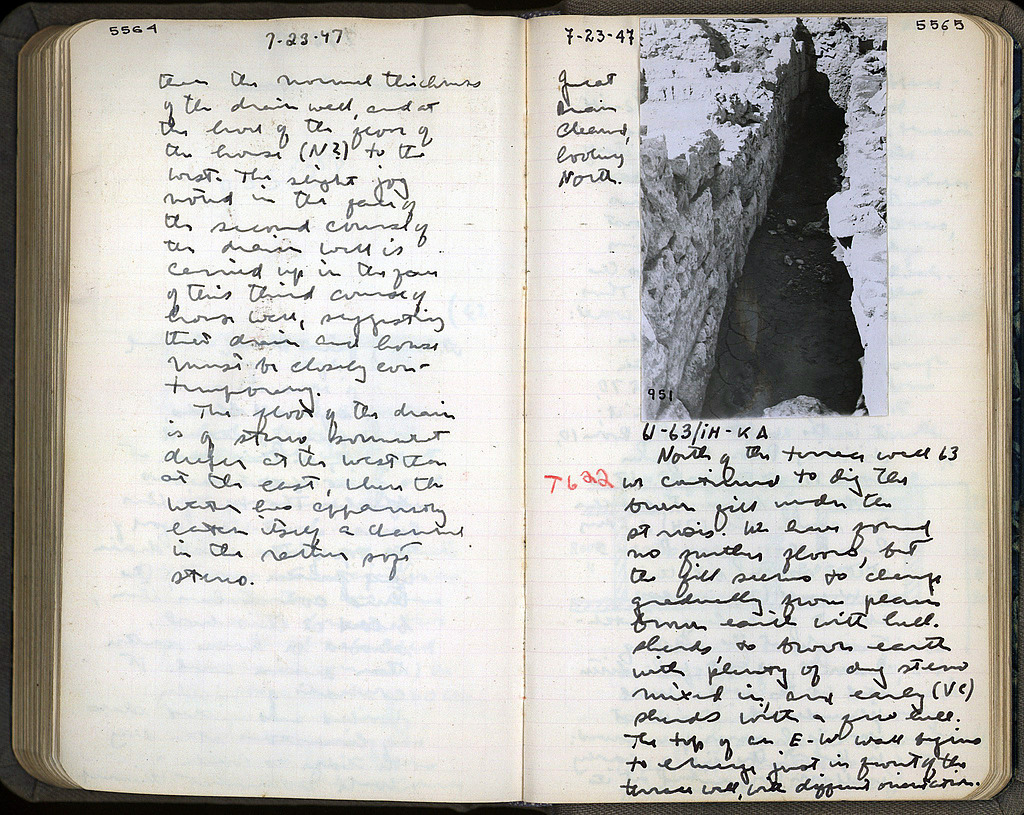 5564
7-23-47
than the normal thickness
of the drain wall, and at
the level of the floor of
the house (N?) to the
west. The slight jog
noted in the face of
the second course of
the drain wall is
carried up in the face
of this third course of
house wall, suggesting
that drain and house
must be closely con-
temporary.
The floor of the drain
is of stereo, somewhat
deeper at the west than
at the east, where the
water has apparently
eaten itself a channel
in the rather soft
stereo.
7-23-47
5565
Great
Drain
cleaned,
looking
North.
951
61-63/ΙΗ-ΚΑ
North of the terrace wall 63
T622 we continued to dig the
brown fill under the
strosis. We have found
no further floors, but
the fill seems to change
gradually from plain
brown earth with hell.
sherds, to brown earth
with plenty of dug stereo
mixed in, and early (Vc)
sherds with a few hell.
The top of an E-W wall begins
to emerge just in front of the
terrace wall, with different orientation.